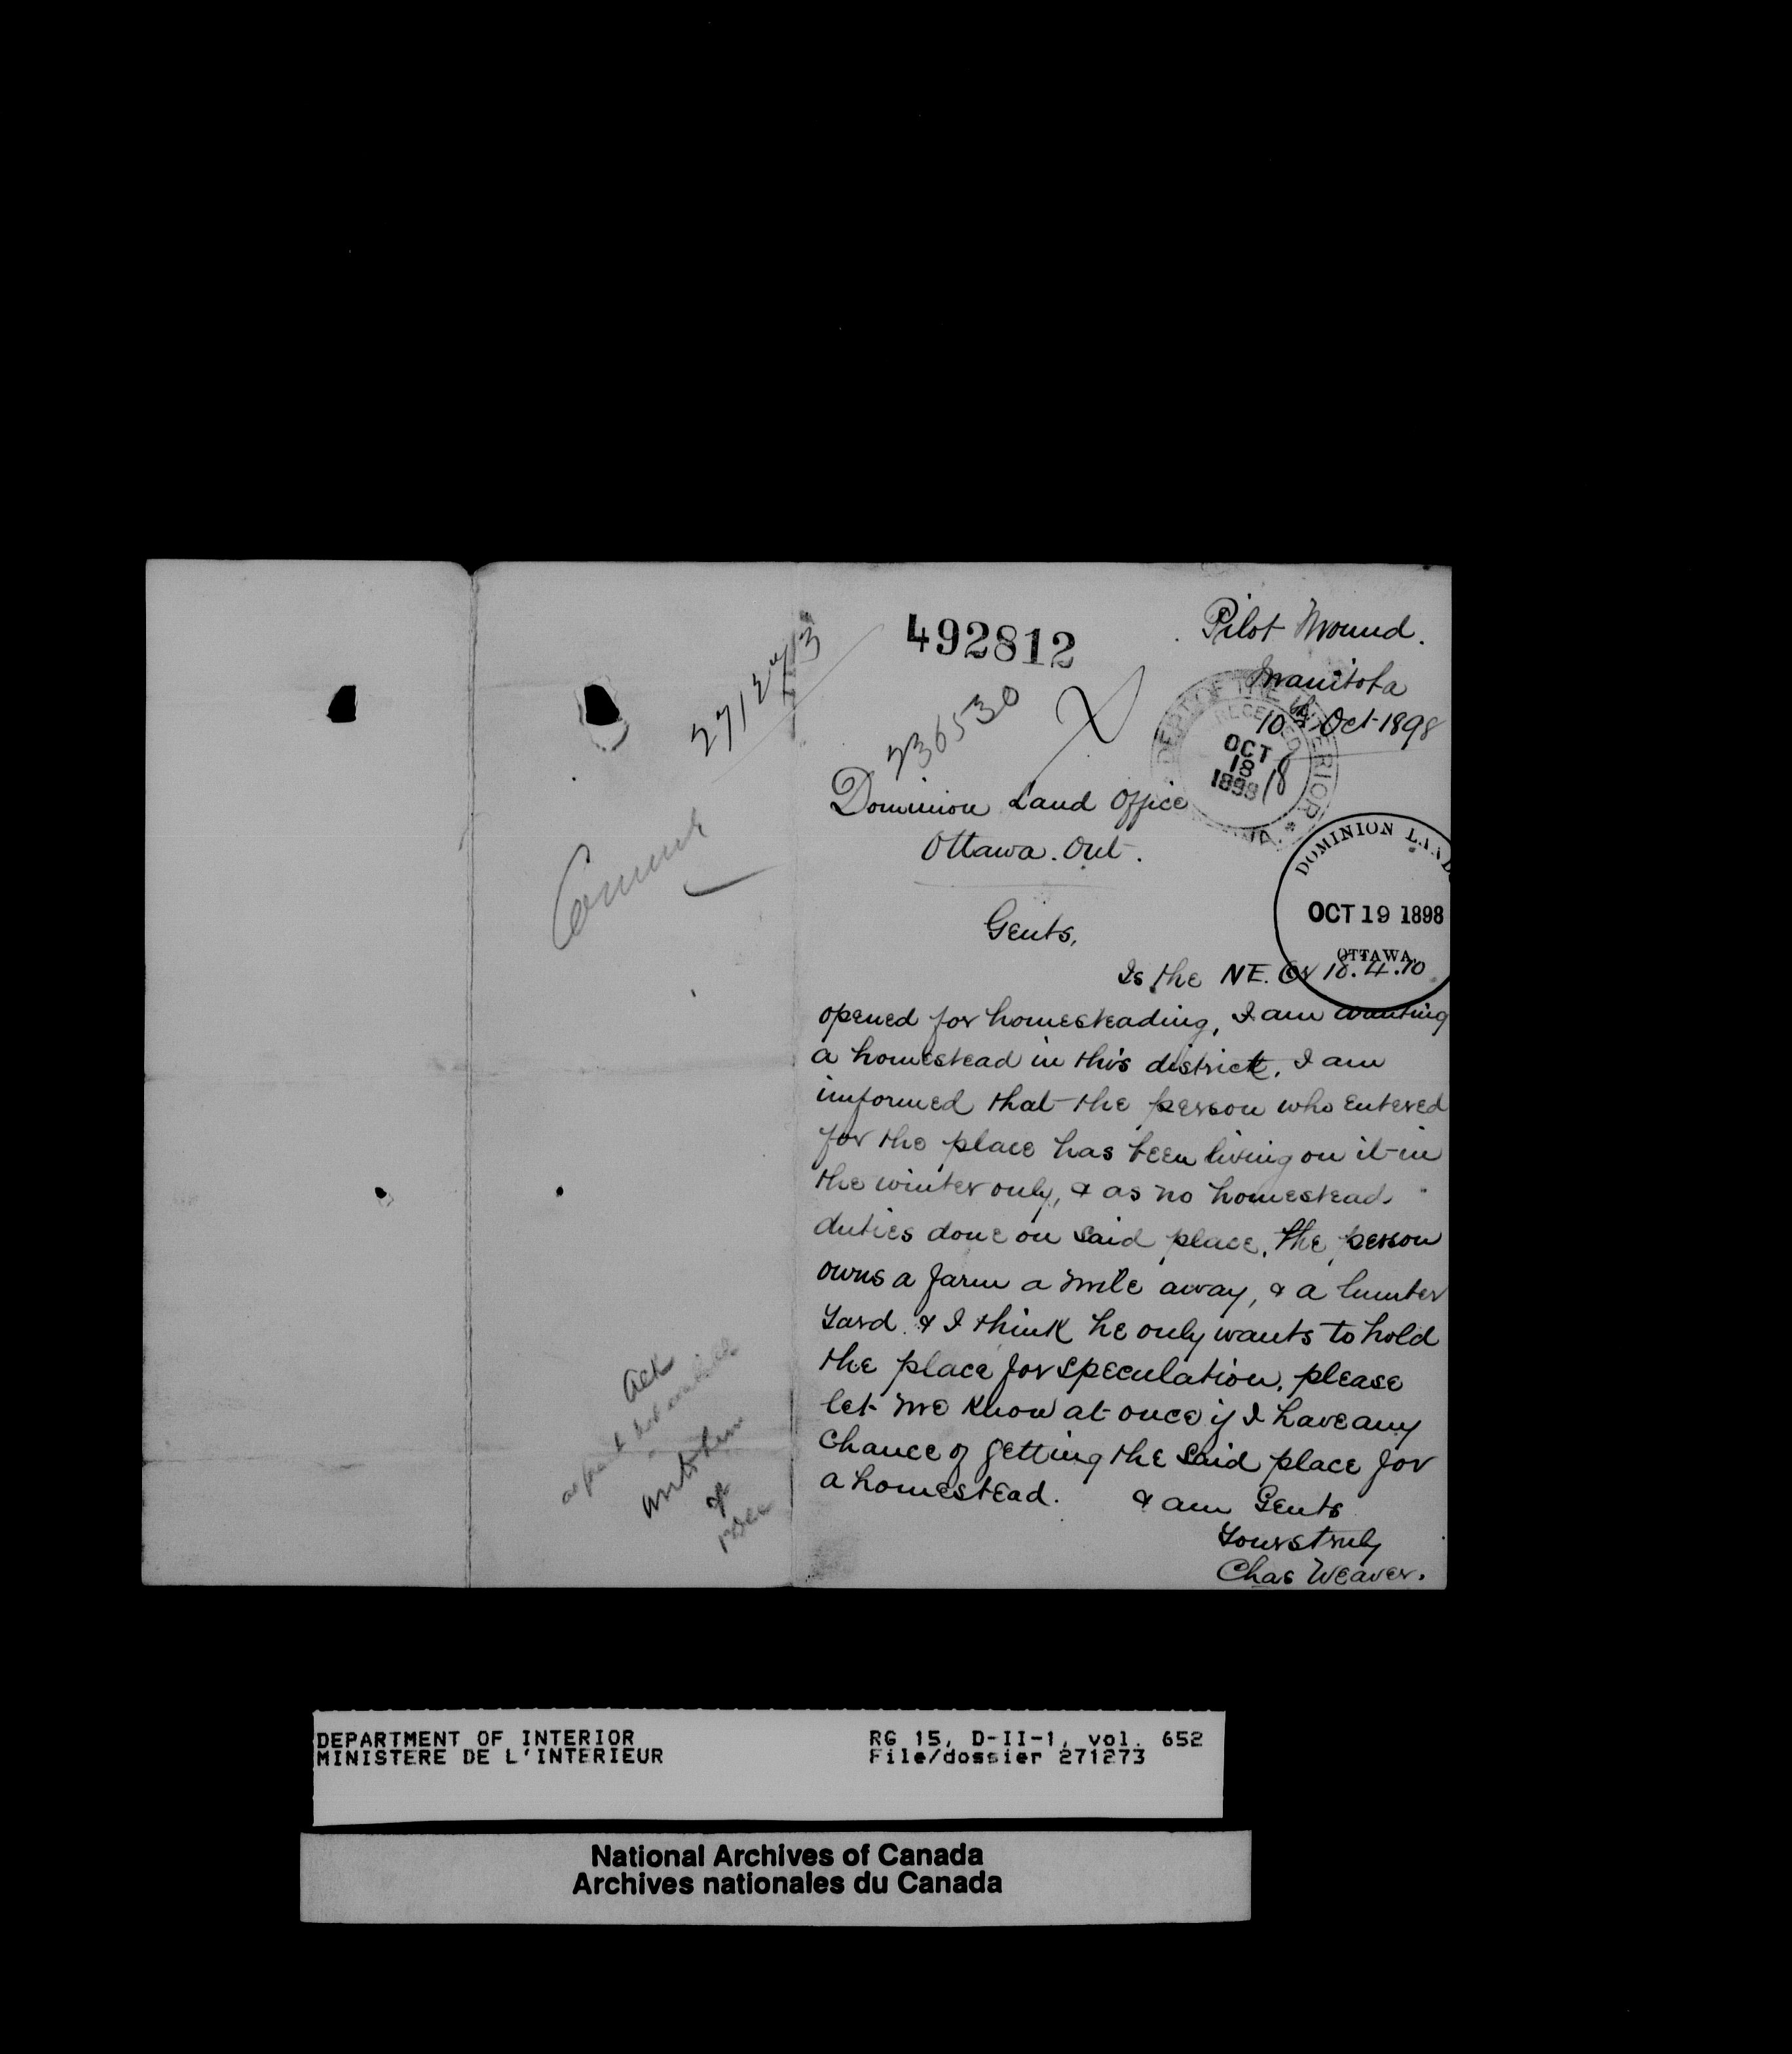 492812
Pilot Mound.
Manitoba
10th Oct 1898
271273
236530
DEPT OF THE INTERIOR
RECEIVED
OCT
18
1898
18
Dominion Land Office
Ottawa. Ont.
DOMINION LANDS
OCT 19 1898
OTTAWA
Gents,
Is the NE. Qr 10. 4. 10
opened for homesteading, I am wanting
a homestead in this district. I am
informed that the person who entered
for the place has been living on it in
the winter only, & as no homestead
duties done on said place. the person
owns a farm a mile away, & a lumber
Yard. & I think he only wants to hold
the place for speculation. please
let me know at once if I have any
chance of getting the said place for
a homestead. & am Gents
Yours truly
Chas Weaver.
Ack
DEPARTMENT OF INTERIOR
MINISTERE DE L'INTERIEUR
RG 15, D-II-1, vol. 652
File/dossier 271273
National Archives of Canada
Archives nationales du Canada